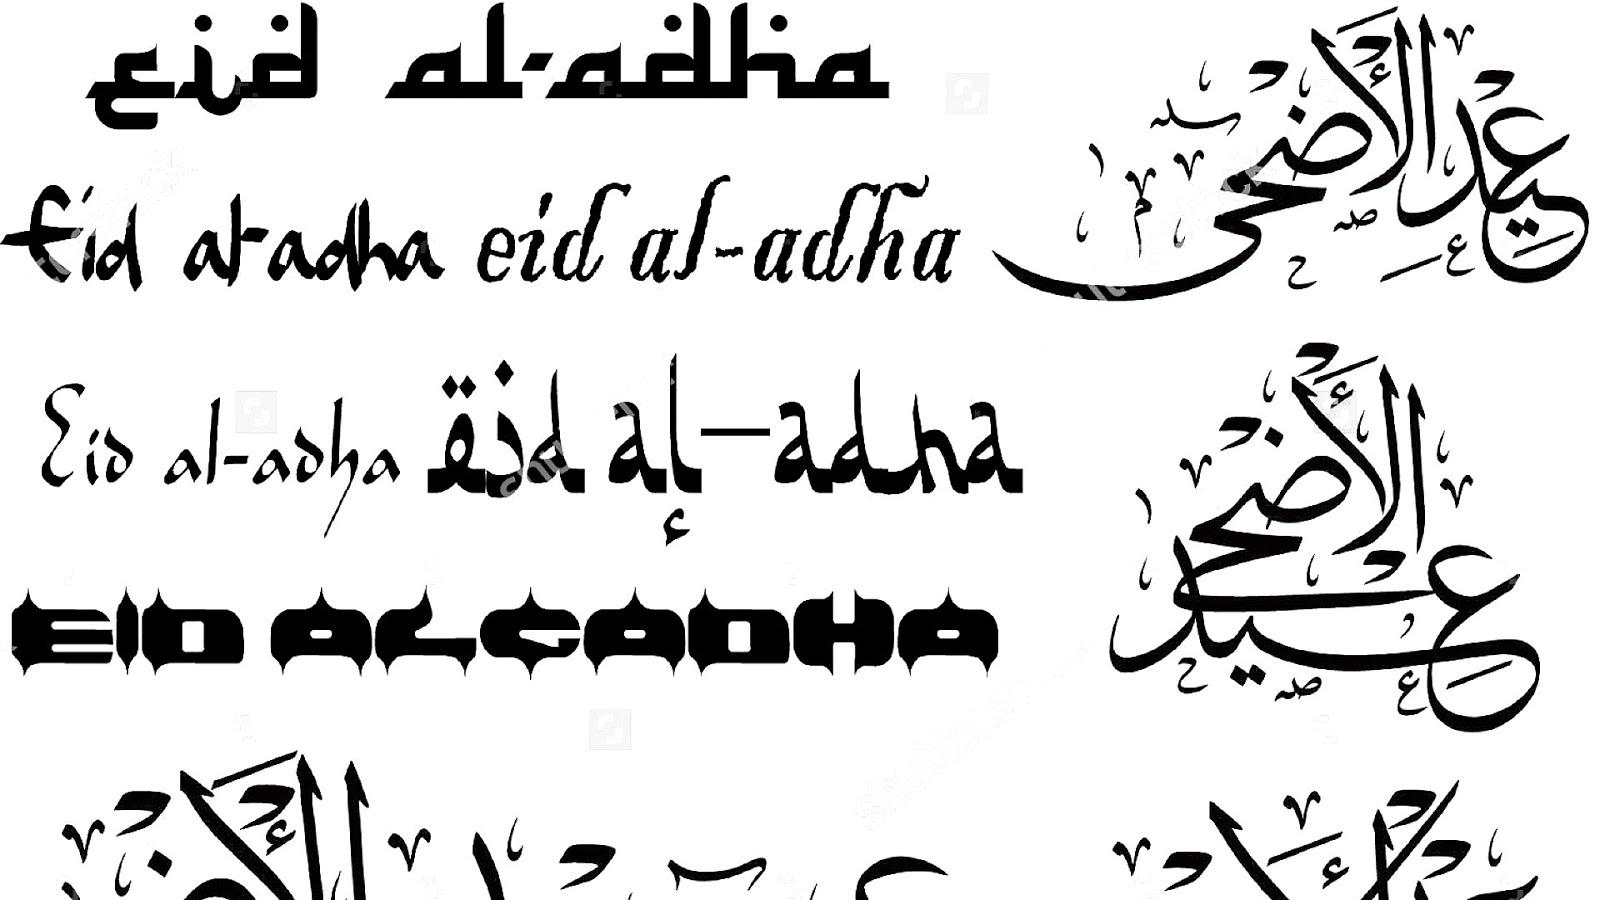 eid al-adha
Eid al-adha eid al-adha
Eid al-adha eid al-adha
EID AL-ADHA
عيد الأضحى
عيد الأضحى